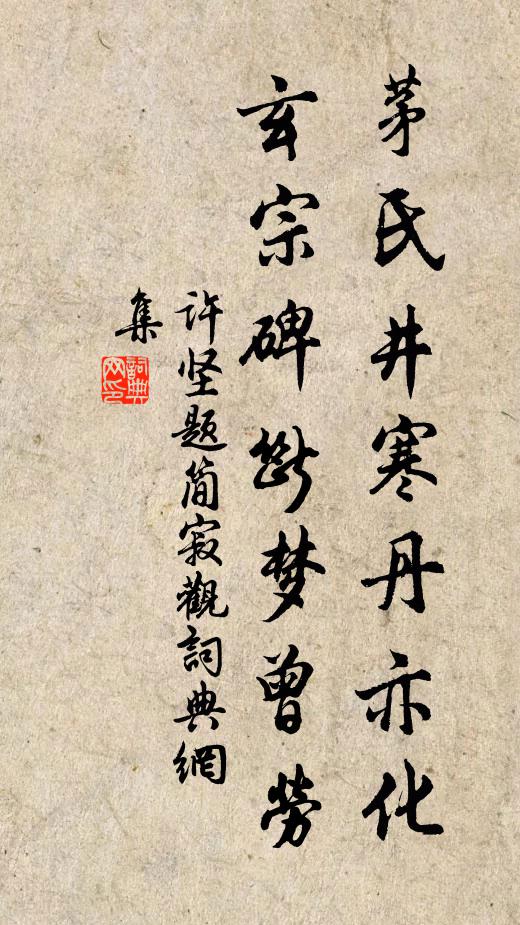 茅氏井寒丹亦化
玄宗碑断梦曾劳
许坚题简寂觀詞典網
集
詞典
网印